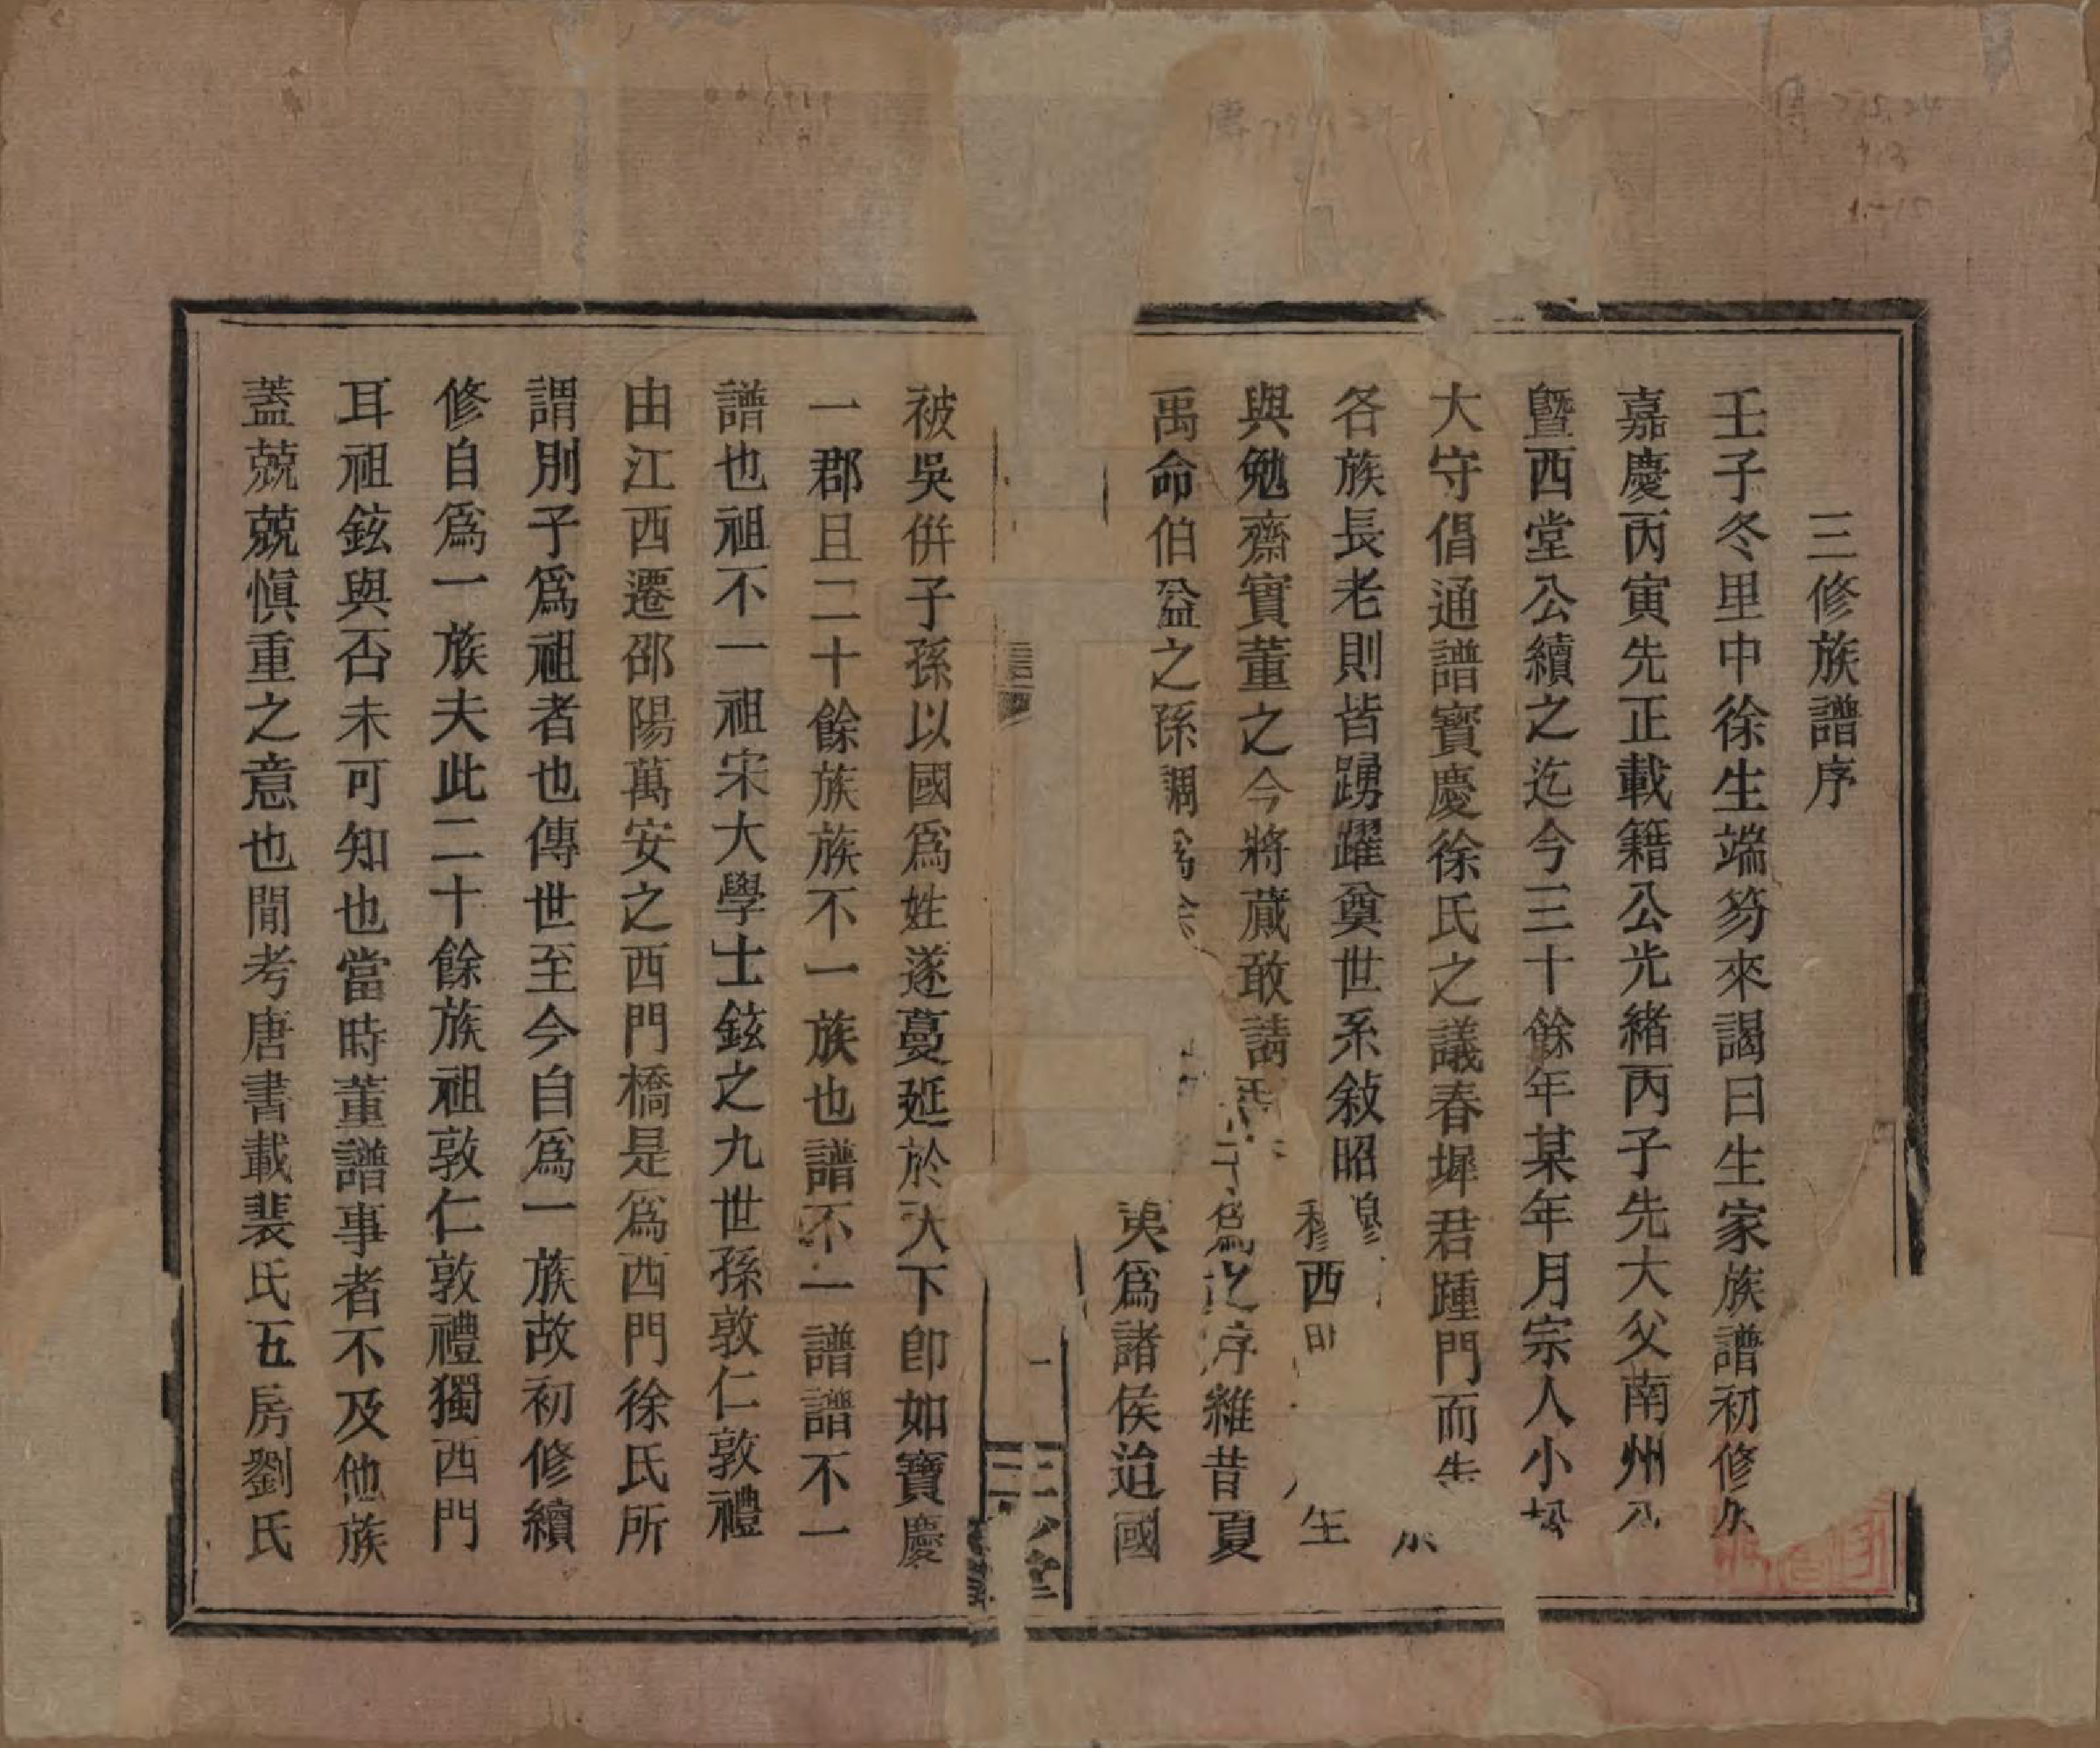 三修族譜序
壬子冬里中徐生端笏來謁曰生家族譜初修
嘉慶丙寅先正載籍公光緒丙子先大父南州
曁西堂公續之迄今三十餘年某年月宗人小
大守倡通譜寶慶徐氏之議春墀君踵門而告
各族長老則皆踴躍奠世系敍昭穆西生
與勉齋實董之今將蕆敢請為之序維昔夏
禹命伯益之孫調爲諸侯迨國
被吳併子孫以國爲姓遂蔓延於天下卽如寶慶
一郡且二十餘族族不一族也譜不一譜譜不一
譜也祖不一祖宋大學士鉉之九世孫敦仁敦禮
由江西遷邵陽萬安之西門橋是爲西門徐氏所
謂別子爲祖者也傳世至今自爲一族故初修續
修自爲一族夫此二十餘族祖敦仁敦禮獨西門
耳祖鉉與否未可知也當時董譜事者不及他族
蓋兢兢愼重之意也閒考唐書載裴氏五房劉氏